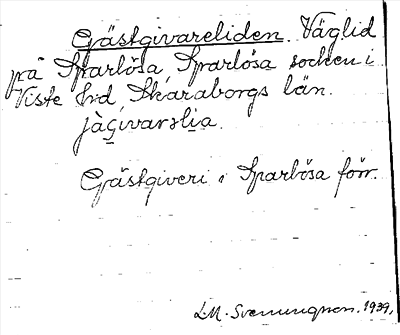 Gästgivareliden. Väglid
på Sparlösa, Sparlösa socken i
Viste hrd, Skaraborgs län.
jàgivarslia.
Gästgiveri i Sparlösa förr.
L.M. Svenungsson. 1939.